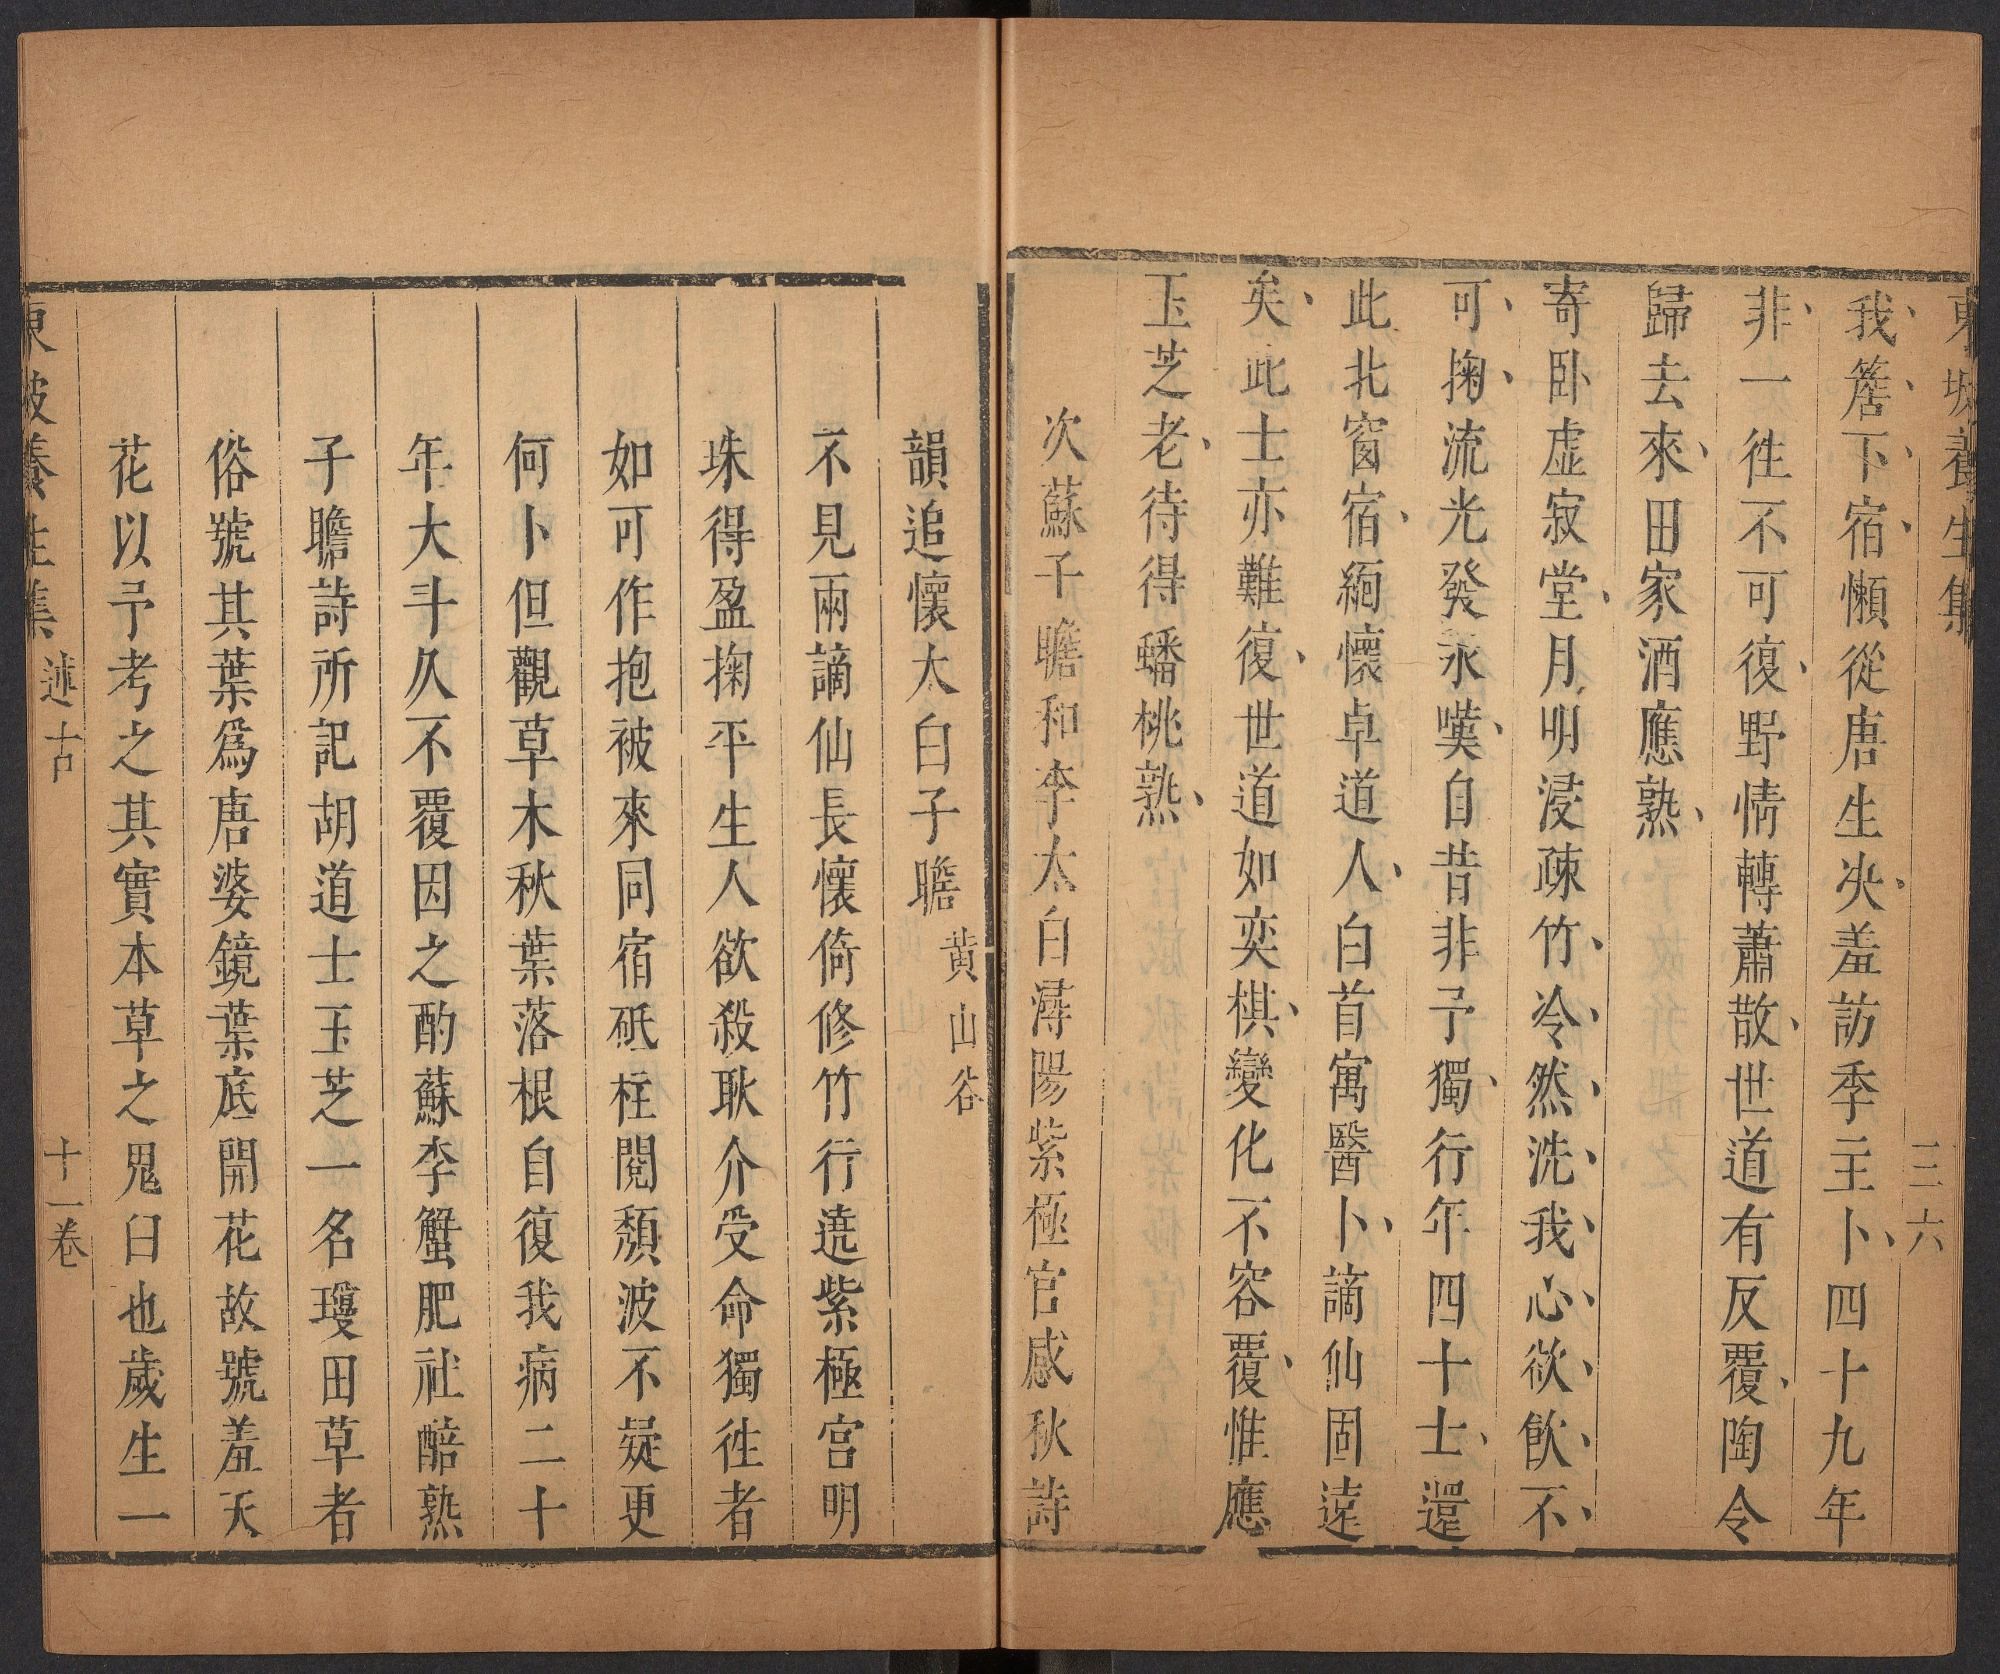 東坡養生集
三六
我簷下宿懶從唐生決羞訪季主卜四十九年
非一徃不可復野情轉蕭散世道有反覆陶令
歸去來田家酒應熟
寄卧虛寂堂月明浸疎竹冷然洗我心欲飲不
可掬流光發永嘆自昔非予獨行年四十士還
此北窗宿緬懷卓道人白首寓醫卜謫仙固遠
矣此士亦難復世道如奕棋變化不容覆惟應
玉芝老待得蟠桃熟
次蘇子瞻和李太白潯陽紫極宮感秋詩
韻追懷太白子瞻 黃山谷
不見兩謫仙長懷倚修竹行遶紫極宮明
珠得盈掬平生人欲殺耿介受命獨徃者
如可作抱被來同宿砥柱閱頹波不疑更
何卜但觀草木秋葉落根自復我病二十
年大斗久不覆因之酌蘇李蟹肥社醅熟
子瞻詩所記胡道士玉芝一名瓊田草者
俗號其葉爲唐婆鏡葉底開花故號羞天
花以予考之其實本草之鬼臼也歲生一
東坡養生集 述古 十一卷